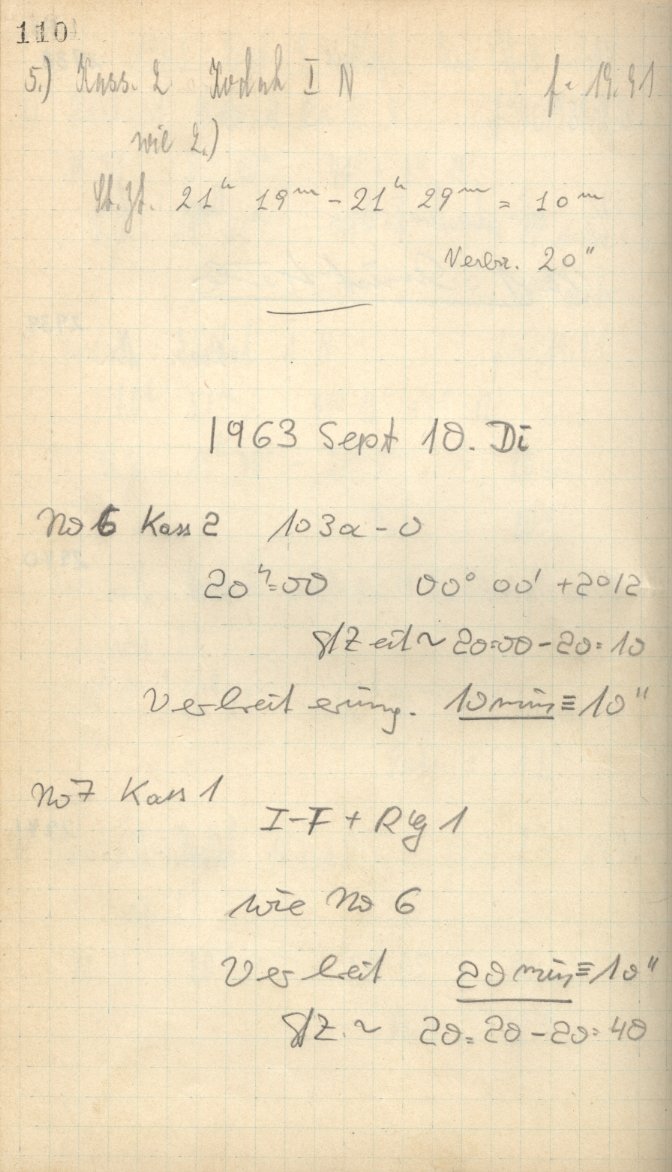 110
5.) Kass. 2 Kodak I N f = 19.91
wie 2.)
St. Zt. 21ʰ 19ᵐ - 21ʰ 29ᵐ = 10ᵐ
Verbr. 20"
1963 Sept 10. Di
No 6 Kass 2 103a-O
20ʰ=00 00° 00' +2012
St/Zeit ~ 20=00 - 20=10
Verbreiterung. 10 min ≡ 10"
No 7 Kass 1
I-F + RG 1
wie No 6
Verbreit 20 min ≡ 10"
St/Z. ~ 20=20 - 20=40